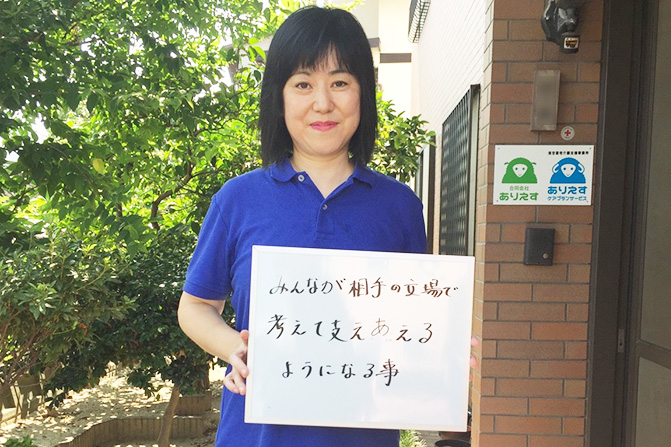 みんなが相手の立場で
考えて支えあえる
ようになる事
合同会社
ありえす
ありえす
ケアプランサービス